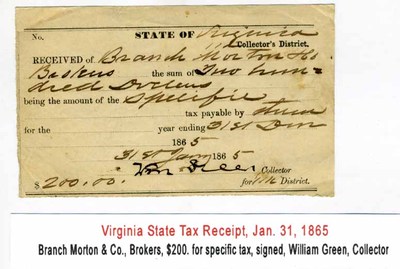 No. STATE OF Virginia
Collector's District.
RECEIVED of Branch Morton & Co
Brokers the sum of Two hun-
dred Dollars
being the amount of the Specific
tax payable by them
for the year ending 31st Dem
1865
31st Jany 1865
Wm Green Collector
$200.00. for District.
Virginia State Tax Receipt, Jan. 31, 1865
Branch Morton & Co., Brokers, $200. for specific tax, signed, William Green, Collector